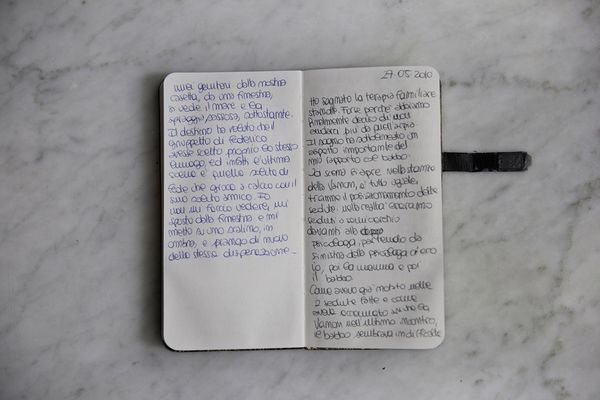 miei genitori dalla nostra
casetta, da una finestra,
si vede il mare e la
spiaggia sassosa, sottostante.
Il destino ha voluto che il
gruppetto di Federico
avesse scelto proprio lo stesso
luogo, ed infatti l'ultima
scena è quella caduta di
Fede che gioca a calcio con il
suo caduto amico. Io
non mi faccio vedere, mi
sposto dalla finestra e mi
metto su uno scalino, in
ombra, e piango di nuovo
della stessa disperazione.
27.05.2010
Ho sognato la terapia familiare
stanotte. Forse perché abbiamo
finalmente deciso di non
andare più da quell'arpia
Il sogno ha sottolineato un
aspetto importante del
mio rapporto col babbo.
La scena si apre nella stanza
della Vanoni, è tutto uguale,
tranne il posizionamento delle
sedute. nella realtà eravamo
seduti a semicerchio
davanti alla
psicologa, partendo da
sinistra della psicologa c'ero
io, poi la mamma e poi
il babbo.
Come avevo già notato nelle
2 sedute fatte e come
aveva accennato anche la
Vanoni nell'ultimo incontro,
il babbo sembrava in difficoltà